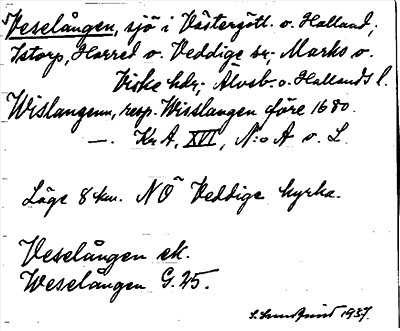 Veselången, sjö i Västergötl. o. Halland;
Istorp, Horred o. Veddige snr; Marks o.
Viske hdr; Älvsb. o. Hallands l.
Wislangenn, resp. Wisslangen före 1680.
—. KrA, XVI, N:o A o. L.
Läge 8 km. NÖ Veddige kyrka.
Veselången ek.
Weselången G. 25.
1937.